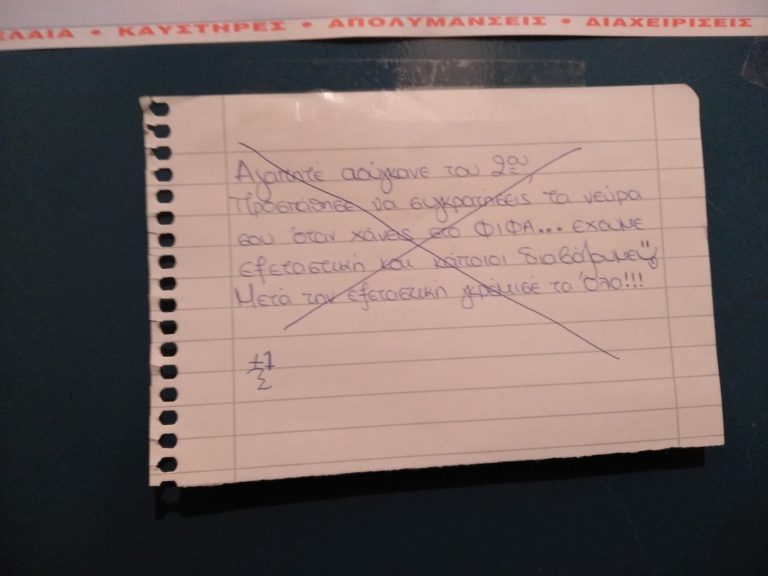 ΕΛΑΙΑ • ΚΑΥΣΤΗΡΕΣ • ΑΠΟΛΥΜΑΝΣΕΙΣ • ΔΙΑΧΕΙΡΙΣΕΙΣ
Αγαπητέ αούγκανε του 2ου
Προσπάθησε να συγκρατήσεις τα νεύρα
σου όταν χάνεις στο ΦΙΦΑ... έχουμε
εξεταστική και κάποιοι διαβάζουμε
Μετά την εξεταστική γκρέμισέ το όλο!!!
±1
Σ